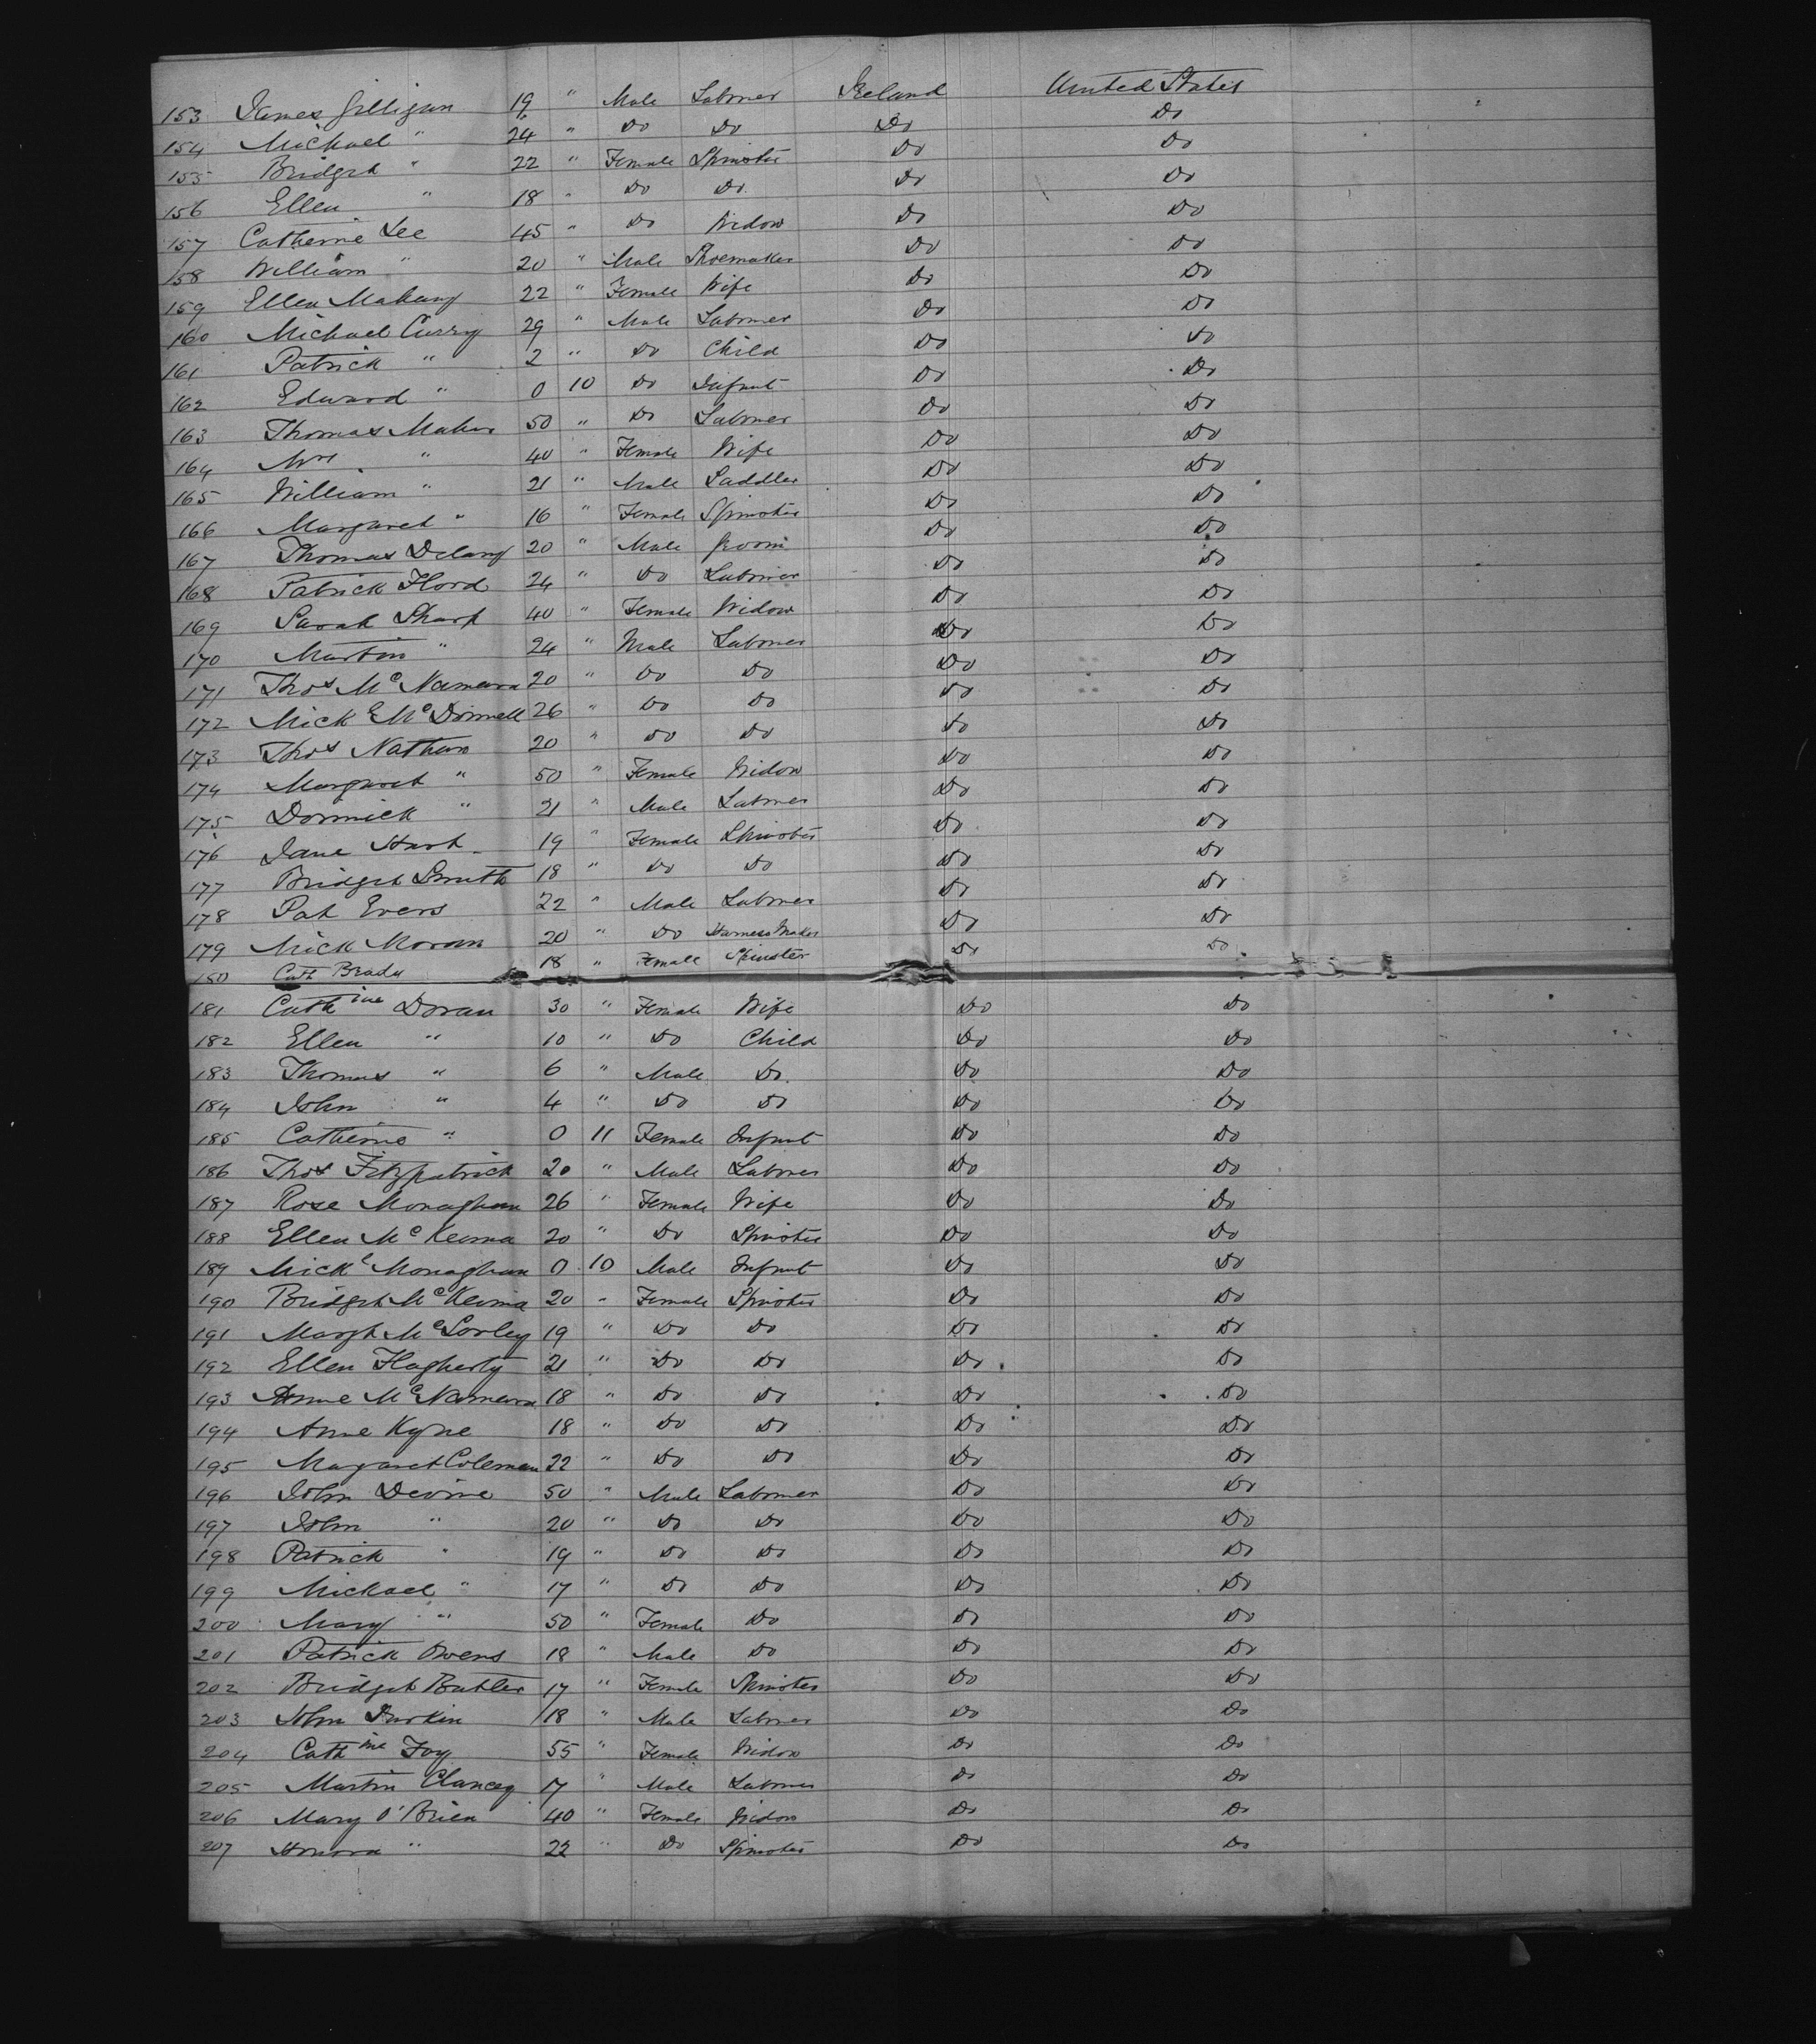 153 James Gilligan 19 " Male Labourer Ireland United States
154 Michael " 24 " Do Do Do Do
155 Bridget " 22 " Female Spinster Do Do
156 Ellen " 18 " Do Do Do Do
157 Catherine Lee 45 " Do Widow Do Do
158 William " 20 " Male Shoemaker Do Do
159 Ellen Mahany 22 " Female Wife Do Do
160 Michael Curry 29 " Male Labourer Do Do
161 Patrick " 2 " Do Child Do Do
162 Edward " 0 10 Do Infant Do Do
163 Thomas Maher 50 " Do Labourer Do Do
164 Mrs " 40 " Female Wife Do Do
165 William " 21 " Male Saddler Do Do
166 Margaret " 16 " Female Spinster Do Do
167 Thomas Delany 20 " Male Groom Do Do
168 Patrick Flord 24 " Do Labourer Do Do
169 Sarah Sharp 40 " Female Widow Do Do
170 Martin " 24 " Male Labourer Do Do
171 Thos McNamara 20 " Do Do Do Do
172 Mick l McDonnell 26 " Do Do Do Do
173 Thos Nathan 20 " Do Do Do Do
174 Margaret " 50 " Female Widow Do Do
175 Dominick " 21 " Male Labourer Do Do
176 Jane Hart 19 " Female Spinster Do Do
177 Bridget Smith 18 " Do Do Do Do
178 Pat Evers 22 " Male Labourer Do Do
179 Mick Moran 20 " Do Harness Maker Do Do
180 Cath Brady 18 " Female Spinster Do Do
181 Cathine Doran 30 " Female Wife Do Do
182 Ellen " 10 " Do Child Do Do
183 Thomas " 6 " Male Do Do Do
184 John " 4 " Do Do Do Do
185 Catherine " 0 11 Female Infant Do Do
186 Thos Fitzpatrick 20 " Male Labourer Do Do
187 Rose Monaghan 26 " Female Wife Do Do
188 Ellen McKenna 20 " Do Spinster Do Do
189 Mickl Monaghan 0 10 Male Infant Do Do
190 Bridget McKenna 20 " Female Spinster Do Do
191 Margt McSorley 19 " Do Do Do Do
192 Ellen Flagherty 21 " Do Do Do Do
193 Anne McNamara 18 " Do Do Do Do
194 Anne Kyne 18 " Do Do Do Do
195 Magaret Coleman 22 " Do Do Do Do
196 John Devine 50 " Male Labourer Do Do
197 John " 20 " Do Do Do Do
198 Patrick " 19 " Do Do Do Do
199 Michael " 17 " Do Do Do Do
200 Mary " 50 " Female Do Do Do
201 Patrick Owens 18 " Male Do Do Do
202 Bridget Butler 17 " Female Spinster Do Do
203 John Durkin 18 " Male Labourer Do Do
204 Cathine Foy 55 " Female Widow Do Do
205 Martin Clancey 17 " Male Labourer Do Do
206 Mary O'Brien 40 " Female Widow Do Do
207 Honora " 22 " Do Spinster Do Do